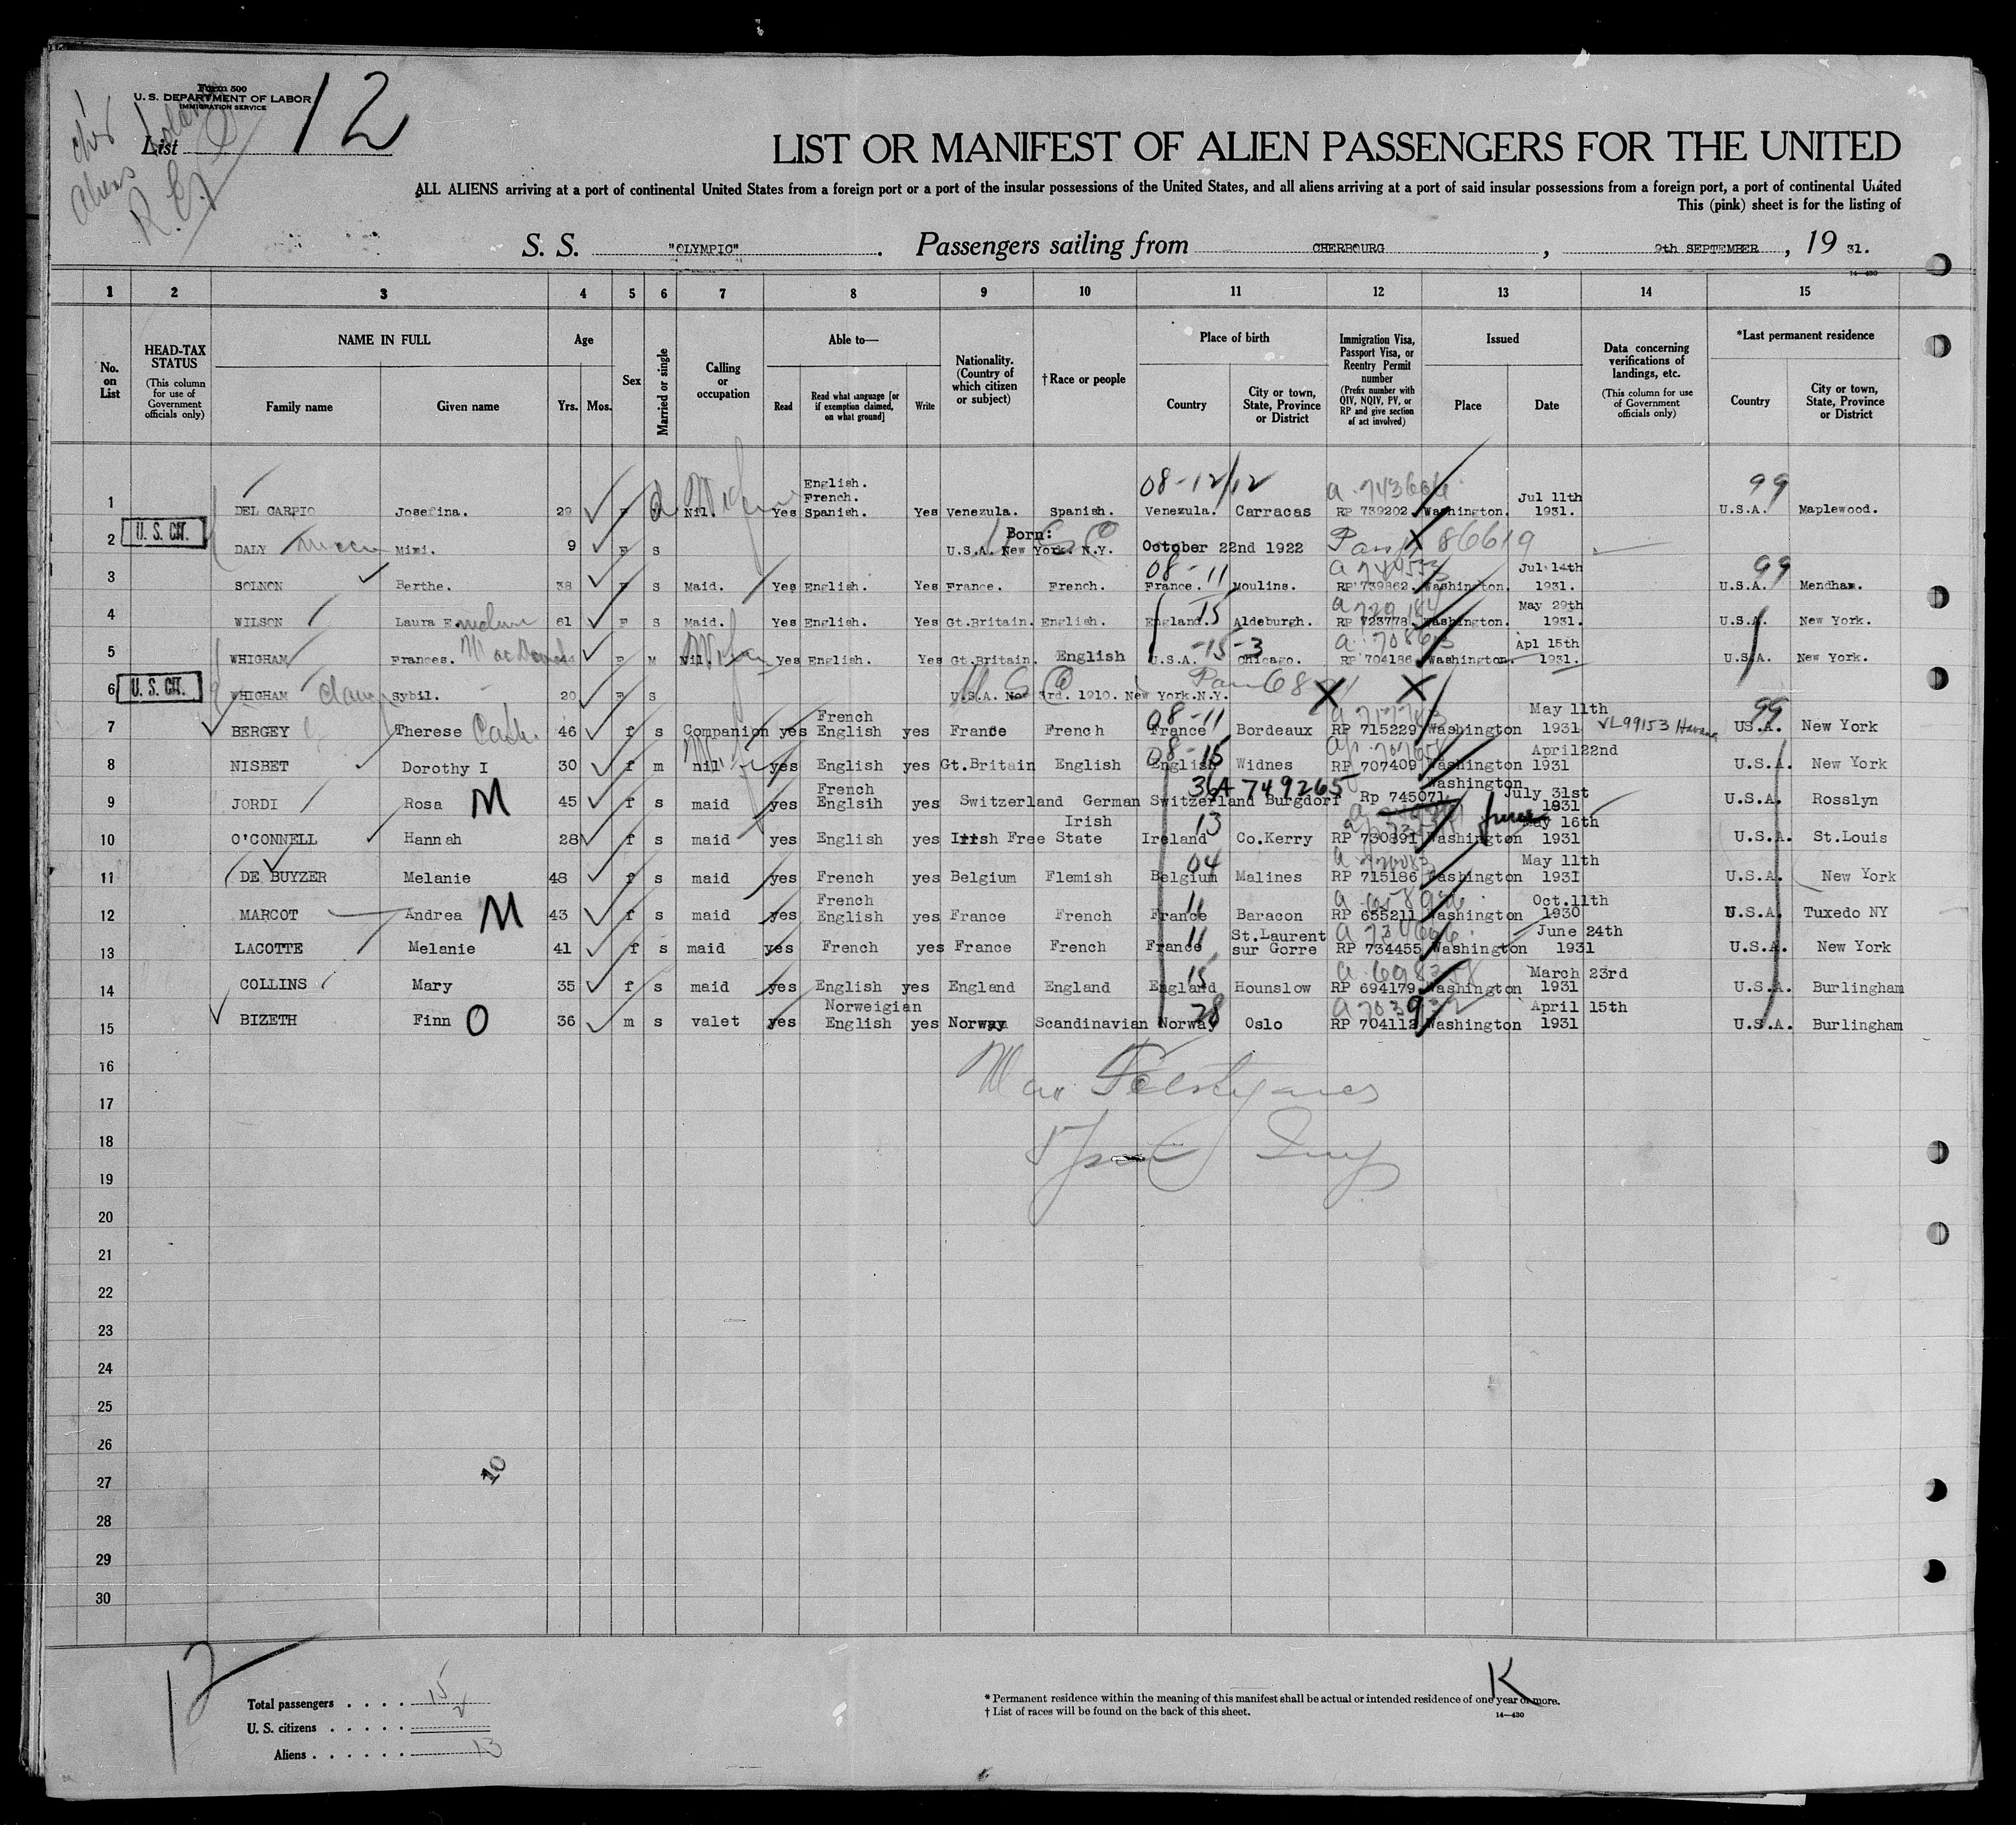 Form 500
U. S. DEPARTMENT OF LABOR
IMMIGRATION SERVICE
List 12
Aliens
LIST OR MANIFEST OF ALIEN PASSENGERS FOR THE UNITED
ALL ALIENS arriving at a port of continental United States from a foreign port or a port of the insular possessions of the United States, and all aliens arriving at a port of said insular possessions from a foreign port, a port of continental United
This (pink) sheet is for the listing of
S. S. "OLYMPIC". Passengers sailing from CHERBOURG, 9th SEPTEMBER, 19 31.
14—430
1 2 3 4 5 6 7 8 9 10 11 12 13 14 15
No. on List
HEAD-TAX STATUS (This column for use of Government officials only)
NAME IN FULL
Family name Given name
Age
Yrs. Mos.
Sex
Married or single
Calling or occupation
Able to—
Read Read what language [or if exemption claimed, on what ground] Write
Nationality. (Country of which citizen or subject)
†Race or people
Place of birth
Country City or town, State, Province or District
Immigration Visa, Passport Visa, or Reentry Permit number (Prefix number with QIV, NQIV, PV, or RP and give section of act involved)
Issued
Place Date
Data concerning verifications of landings, etc. (This column for use of Government officials only)
*Last permanent residence
Country City or town, State, Province or District
English.
French. 08-12/12 99
1 DEL CARPIO Josefina. 29 F Nil. Yes Spanish. Yes Venezula. Spanish. Venezula. Carracas RP 739202. Washington. Jul 11th 1931. U.S.A. Maplewood.
U. S. CIT.
2 DALY Mimi. 9 F S Born: U.S.A. New York. N.Y. October 22nd 1922 86619
3 SOLNON Berthe. 38 F S Maid. Yes English. Yes France. French. 08-11 France. Moulins. RP 739862. Washington. Jul 14th 1931. 99 U.S.A. Mendham.
4 WILSON Laura E. 61 F S Maid. Yes English. Yes Gt.Britain. English. 15 England. Aldeburgh. RP 723778. Washington. May 29th 1931. U.S.A. New York.
5 WHIGHAM Frances. F M Nil. Yes English. Yes Gt.Britain. English U.S.A. -15-3 Chicago. RP 704186. Washington. Apl 15th 1931. U.S.A. New York.
U. S. CIT.
6 WHIGHAM Sybil. 20 F S U.S.A. Nov 3rd. 1910. New York.N.Y.
7 BERGEY Therese 46 f s Companion yes French English yes France French 08-11 France Bordeaux RP 715229 Washington May 11th 1931 VL99153 Havana 99 US.A. New York
8 NISBET Dorothy I 30 f m nil yes English yes Gt.Britain English 08-15 English Widnes RP 707409 Washington April22nd 1931 U.S.A. New York
9 JORDI Rosa M 45 f s maid yes French Englsih yes Switzerland German Switzerland Burgdorf 36 A 749265 Rp 745071 Washington July 31st 1931 U.S.A. Rosslyn
10 O'CONNELL Hannah 28 f s maid yes English yes Irish Free State Irish 13 Ireland Co.Kerry RP 730891 Washington June May 16th 1931 U.S.A. St.Louis
11 DE BUYZER Melanie 48 f s maid yes French yes Belgium Flemish 04 Belgium Malines RP 715186 Washington May 11th 1931 U.S.A. New York
12 MARCOT Andrea M 43 f s maid yes French English yes France French 11 France Baracon RP 655211 Washington Oct.11th 1930 U.S.A. Tuxedo NY
13 LACOTTE Melanie 41 f s maid yes French yes France French 11 France St.Laurent sur Gorre RP 734455 Washington June 24th 1931 U.S.A. New York
14 COLLINS Mary 35 f s maid yes English yes England England 15 England Hounslow RP 694179 Washington March 23rd 1931 U.S.A. Burlingham
15 BIZETH Finn O 36 m s valet yes Norweigian English yes Norway Scandinavian 28 Norway Oslo RP 704112 Washington April 15th 1931 U.S.A. Burlingham
16
17
18
19
20
21
22
23
24
25
26
10
27
28
29
30
12
K
Total passengers . . . . 15
U. S. citizens . . . . . 2
Aliens . . . . . . 13
* Permanent residence within the meaning of this manifest shall be actual or intended residence of one year or more.
† List of races will be found on the back of this sheet.
14—430